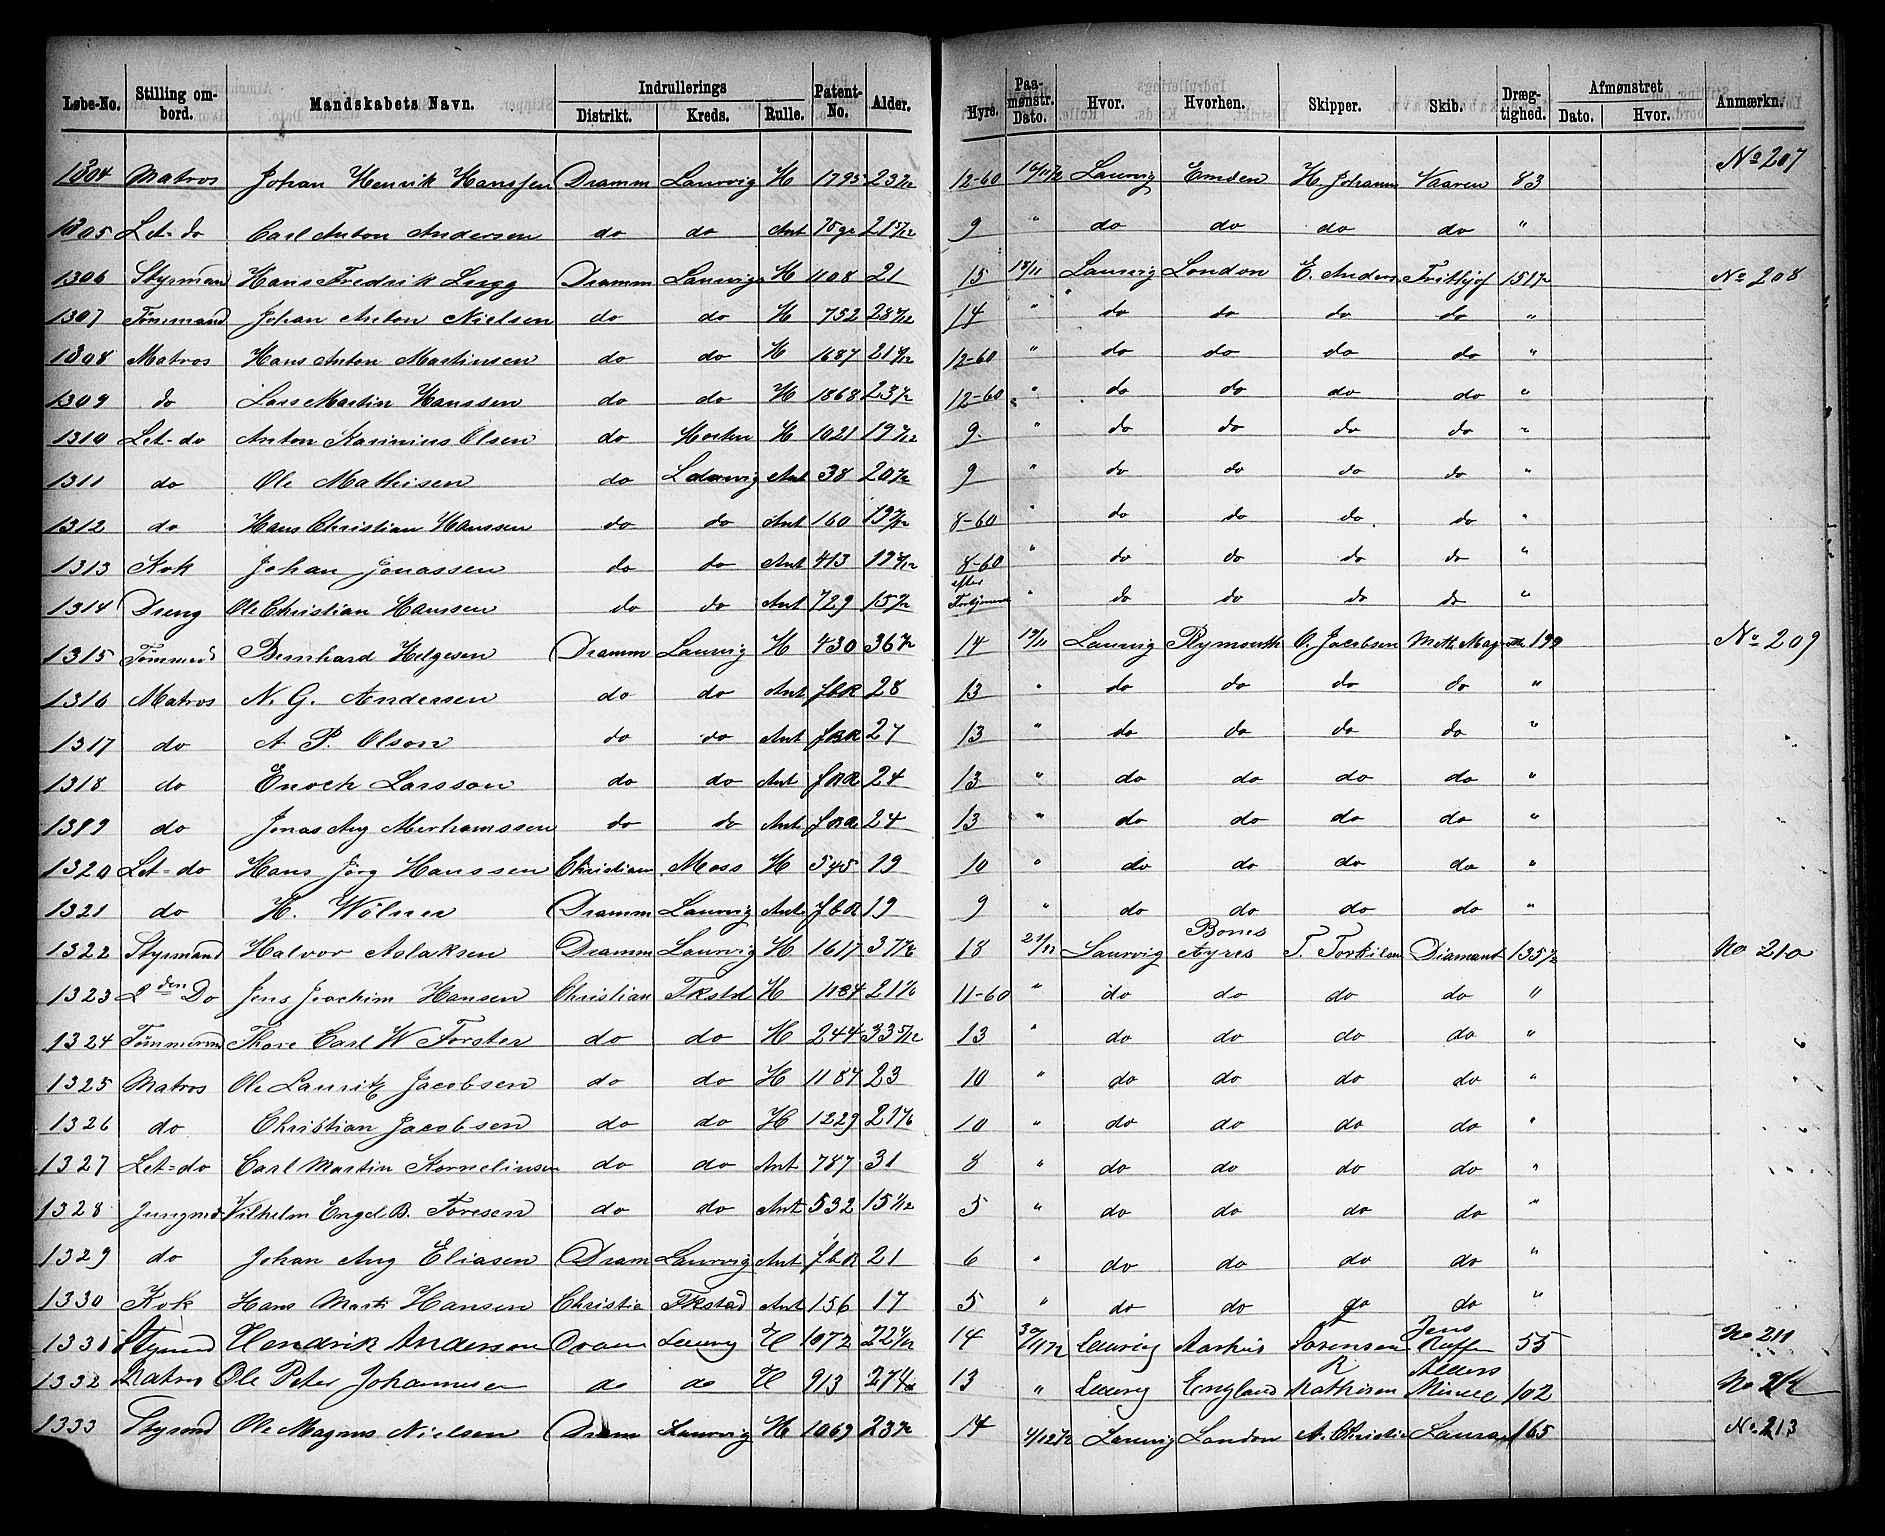 Løbe-No. Stilling ombord. Mandskabets Navn. Indrullerings Distrikt. Kreds. Rulle. Patent-No. Alder. Hyre. Paamønstr. Dato. Hvor. Hvorhen. Skipper. Skib. Drægtighed. Afmønstret Dato. Hvor. Anmærkn.
1304 Matros Johan Henrik Hanssen Dramm Laurvig H 1795 12-60 Laurvig Emden H. Johann Vaaren 83 No 207
1305 Let-do Carl Anton Andersen do do Ant 9 " do do do do "
1306 Styrmand Hans Fredrik Lugg Dramm Laurvig H 1108 21 15 18/11 Laurvig London E. Anders Frithjof 151½ No 208
1307 Tømmand Johan Anton Nielsen do do H 752 14 " do do do do "
1308 Matros Hans Anton Martinsen do do H 1687 12-60 " do do do do "
1309 do Lars Martin Hanssen do do H 1868 23½ 12-60 " do do do do "
1310 Let-do Anton Karinius Olsen do Horten H 1021 9 " do do do do "
1311 do Ole Mathisen do Laurvig Ant 38 20½ 9 " do do do do "
1312 do Hans Christian Hanssen do do Ant 160 8-60 " do do do do "
1313 Kok Johan Jonassen do do Ant 413 8-60 " do do do do "
1314 Dreng Ole Christian Hanssen do do Ant 729 15½ efter Fortjeneste " do do do do "
1315 Tømmmd Bernhard Helgesen Dramm Laurvig H 430 36½ 14 19/11 Laurvig Plymouth O. Jacobsen 199 No 209
1316 Matros N. G. Andersen do do Ant fbR 28 13 " do do do do "
1317 do A P. Olson do do Ant 27 13 " do do do do "
1318 do Enock Larsson do do Ant 24 13 " do do do do "
1319 do Jonas Aug do do Ant 24 13 " do do do do "
1320 Let-do Hans Jörg Hanssen Christian Moss H 545 19 10 " do do do do "
1321 do H. Wölner Dramm Laurvig Ant fbR 19 9 " do do do do "
1322 Styrmand Halvor Aslaksen Dramm Laurvig H 1617 18 Laurvig Bones Ayres T. Torkilsen Diamant 135½ No 210
1323 2den Do Jens Joachim Hansen Christian Fkstd H 1184 11-60 " do do do do "
1324 Tømmerm Thore Carl W Forster do do H 244 33 5/12 13 " do do do do "
1325 Matros Ole Lauritz Jacobsen do do H 1187 23 10 " do do do do "
1326 do Christian Jacobsen do do H 1229 10 " do do do do "
1327 Let-do Carl Martin Kornelinsen do do Ant 787 31 8 " do do do do "
1328 Jungmd Vilhelm Engel B. Toresen do do Ant 532 5 " do do do do "
1329 do Johan Aug Eliasen Dram Laurvig Ant fbR 21 6 " do do do do "
1330 Kok Hans Mart Hansen Christia Fkstad Ant 156 17 5 " do do do do "
1331 Styrmd Hendrik Anderson Dram Laurvig H 1072 14 Laurvig Aarhus Sorensen Jens 55 No 211
1332 Matros Ole Peter Johannesen do do H 913 13 " Laurvig England R Mathisen 102 No 212
1333 Styrmd Ole Magnus Nielsen Dram Laurvig H 1069 23½ 14 Laurvig London A. Christia Laura 165 No 213